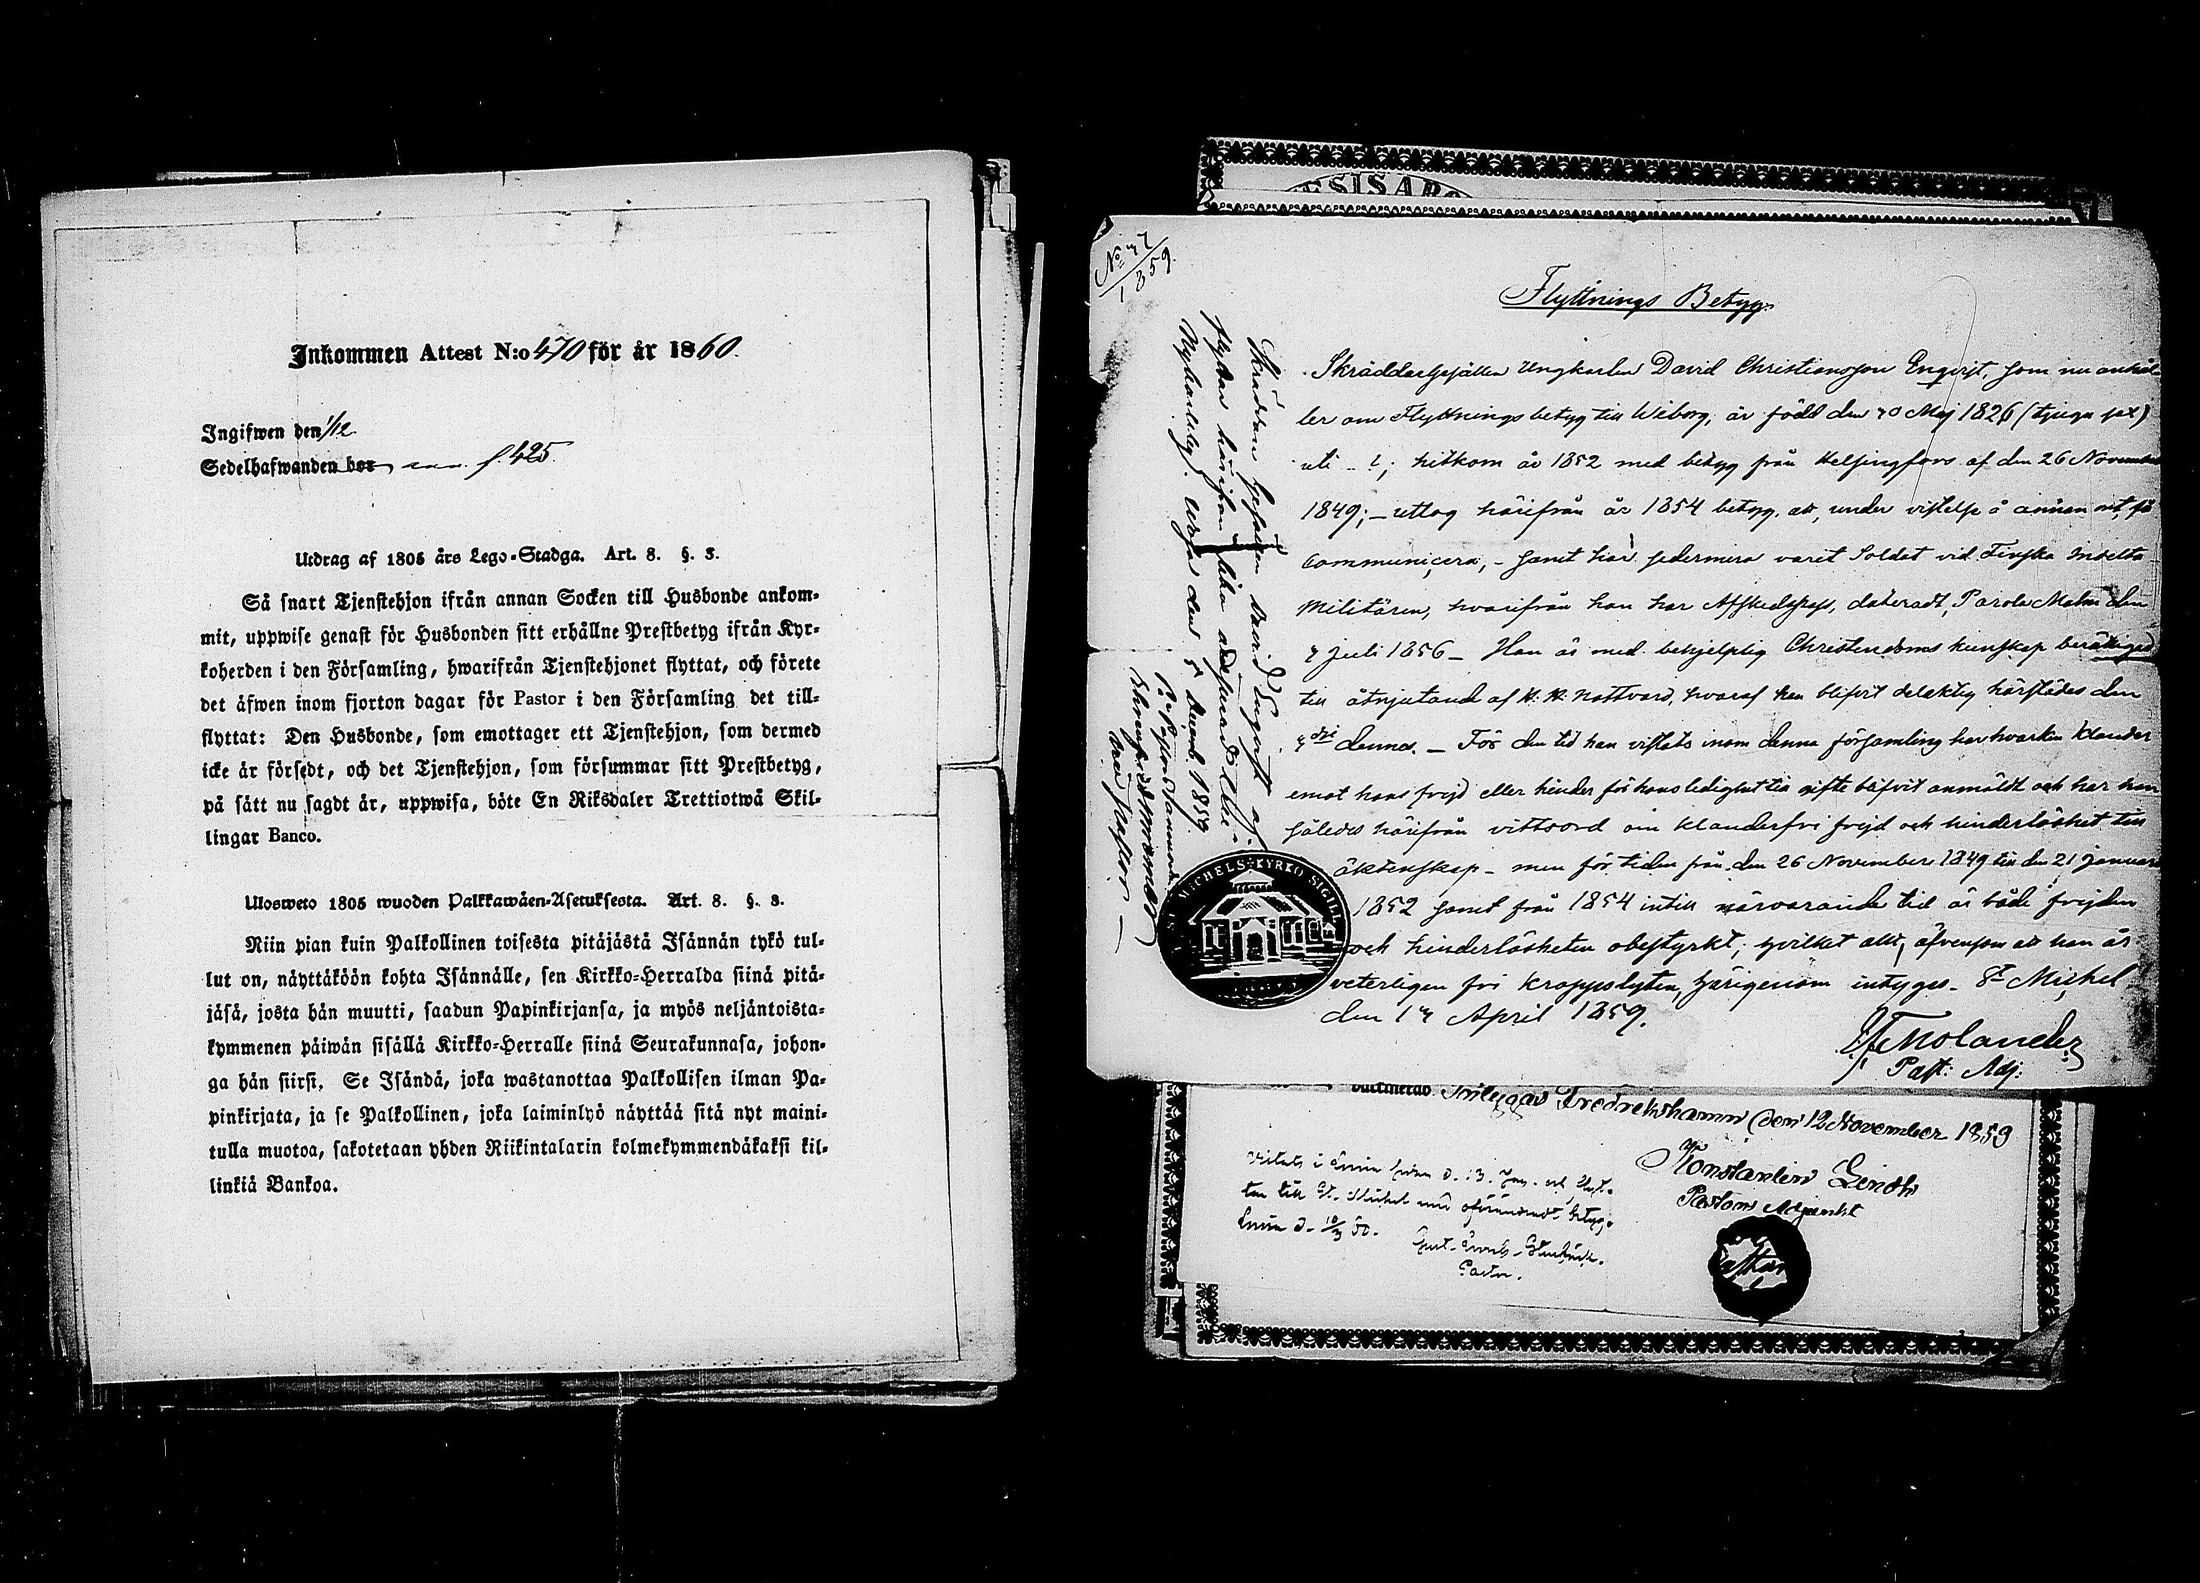 Inkommen Attest N:o 470 för år 1860.
Ingifwen den 1/12
Sedelhafwanden bor f. 425.
Utdrag af 1805 års Lego-Stadga. Art. 8. §. 3.
Så snart Tjenstehjon ifrån annan Socken till Husbonde ankom-
mit, uppwise genast för Husbonden sitt erhållne Prestbetyg ifrån Kyr-
koherden i den Församling, hwarifrån Tjenstehjonet flyttat, och förete
det äfwen inom fjorton dagar för Pastor i den Församling det till-
flyttat: Den Husbonde, som emottager ett Tjenstehjon, som dermed
icke är försedt, och det Tjenstehjon, som försummar sitt Prestbetyg,
på sätt nu sagdt är, uppwisa, böte En Riksdaler Trettiotwå Skil-
lingar Banco.
Ulosweto 1805 wuoden Palkkawäen-Asetuksesta. Art. 8. §. 3.
Niin pian kuin Palkollinen toisesta pitäjästä Isännän tykö tul-
lut on, näyttäköön kohta Isännälle, sen Kirkko-Herralda siinä pitä-
jäsä, josta hän muutti, saadun Papinkirjansa, ja myös neljäntoista-
kymmenen päiwän sisällä Kirkko-Herralle siinä Seurakunnasa, johon-
ga hän siirsi. Se Isändä, joka wastanottaa Palkollisen ilman Pa-
pinkirjata, ja se Palkollinen, joka laiminlyö näyttää sitä nyt maini-
tulla muotoa, sakotetaan yhden Riikintalarin kolmekymmendäkaksi kil-
linkiä Bankoa.
SISAR
No 47
1859.
Flyttnings Betyg.
Skräddargesällen Ungkarlen David Christiansson Engqvist, som nu anhål-
ler om Flyttningsbetyg till Wiborg, är född den 20 Maj 1826 (tjugu sex)
uti - ?; hitkom år 1852 med betyg från Helsingfors af den 26 November
1849; - uttog härifrån år 1854 betyg, att, under vistelse å annan ort, få
communicera, - samt har sedermera varit Soldat vid Finska Indelta
Militären, hvarifrån han har Afskedspass, dateradt, Parola Malm den
7 Juli 1856 - Han är med behjelplig Christendoms kunskap berättigad
till åtnjutande af H. H. Nattvard, hvaraf han blifvit delaktig härstädes den
dennes. - För den tid han vistats inom denna församling har hvarken klander
emot hans frejd eller hinder för hans ledighet till gifte blifvit anmäldt och har han
således härifrån vittsord om klanderfri frejd och hinderlöshet till
äktenskap - men för tiden från den 26 November 1849 till den 21 Januari
1852 samt från 1854 intill närvarande tid är både frejden
och hinderlösheten obestyrkt; hvilket allt, äfvensom att han är
veterligen fri kroppslyten, härigenom intygas. St Michel
den 17 April 1859.
Molander
Past: Adj:
Skräddare Gesällen David Engqvist af-
flyttar härifrån
den 5 Decemb. 1859.
på Pastors vägnar
ST MICHELS KYRKO SIGILL
Intygas Fredrikshamn den 12 November 1859
Konstantin Lindh
Pastors Adjunkt
Vistats i sedan d. 13. Jan. och flyt-
tar till St. Michel med oförändradt betyg.
d. 10/3 50.
Pastor.